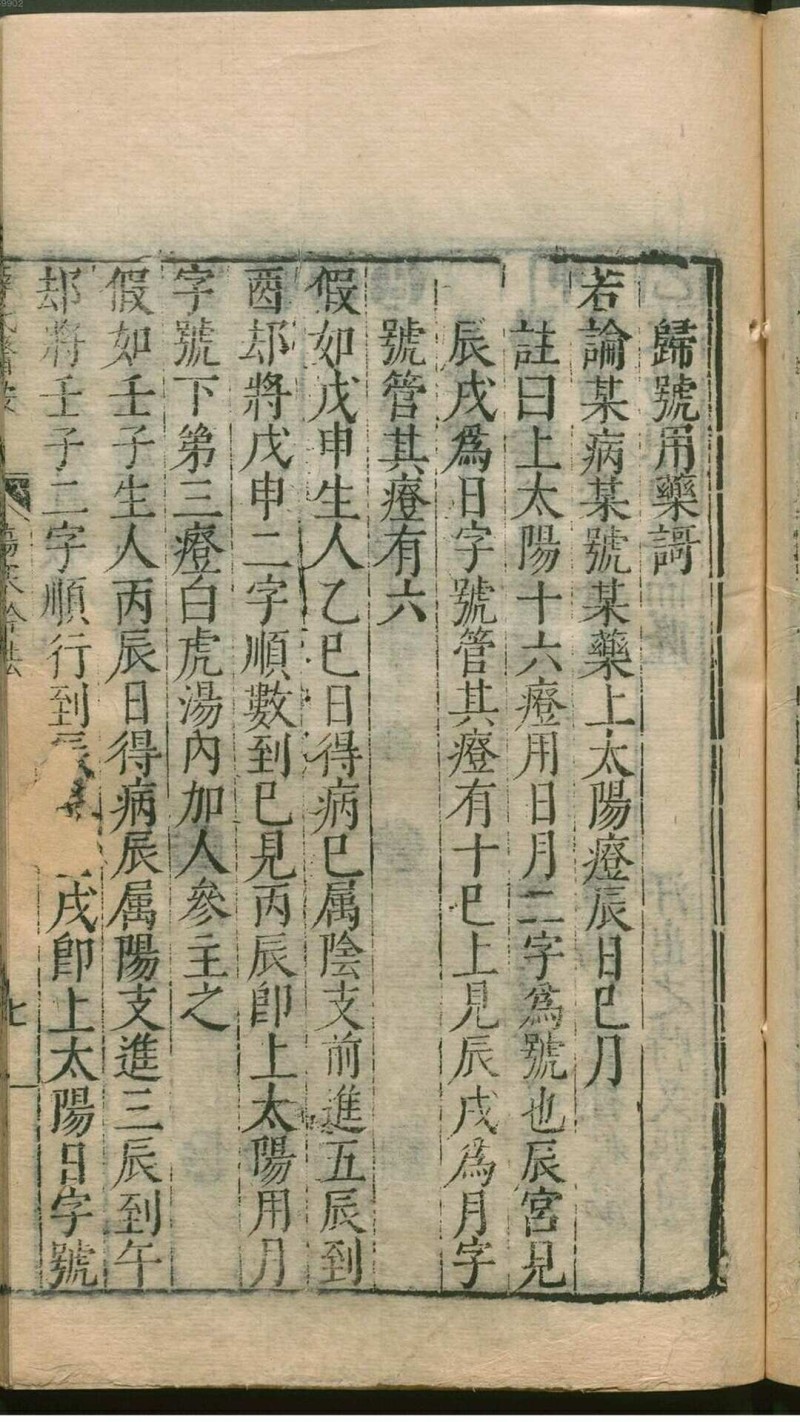 歸號用藥謌
若論某病某號某藥上太陽證辰日巳月
註曰上太陽十六證用日月二字爲號也辰宮見
辰戌爲日字號管其證有十巳上見辰戌爲月字
號管其證有六
假如戊申生人乙巳日得病巳属陰支前進五辰到
酉却將戊申二字順數到巳見丙辰卽上太陽用月
字號下第三證白虎湯內加人參主之
假如壬子生人丙辰日得病辰属陽支進三辰到午
却將壬子二字順行到 戌卽上太陽日字號
七
9902